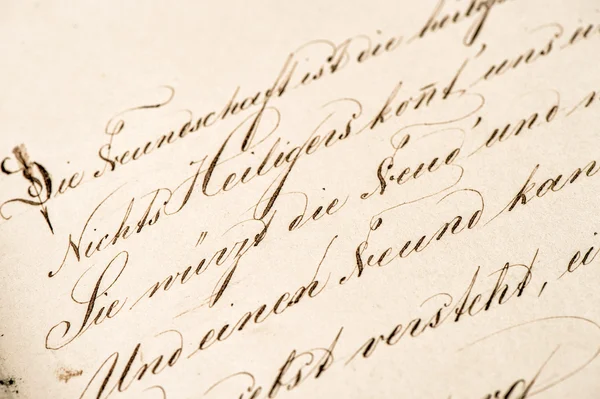 Die Freundschaft ist die heilig
Nichts Heiligers konn̄t' uns ei
Sie würzt die Freud' und
Und einen Freund kan
liebst versteht, ei